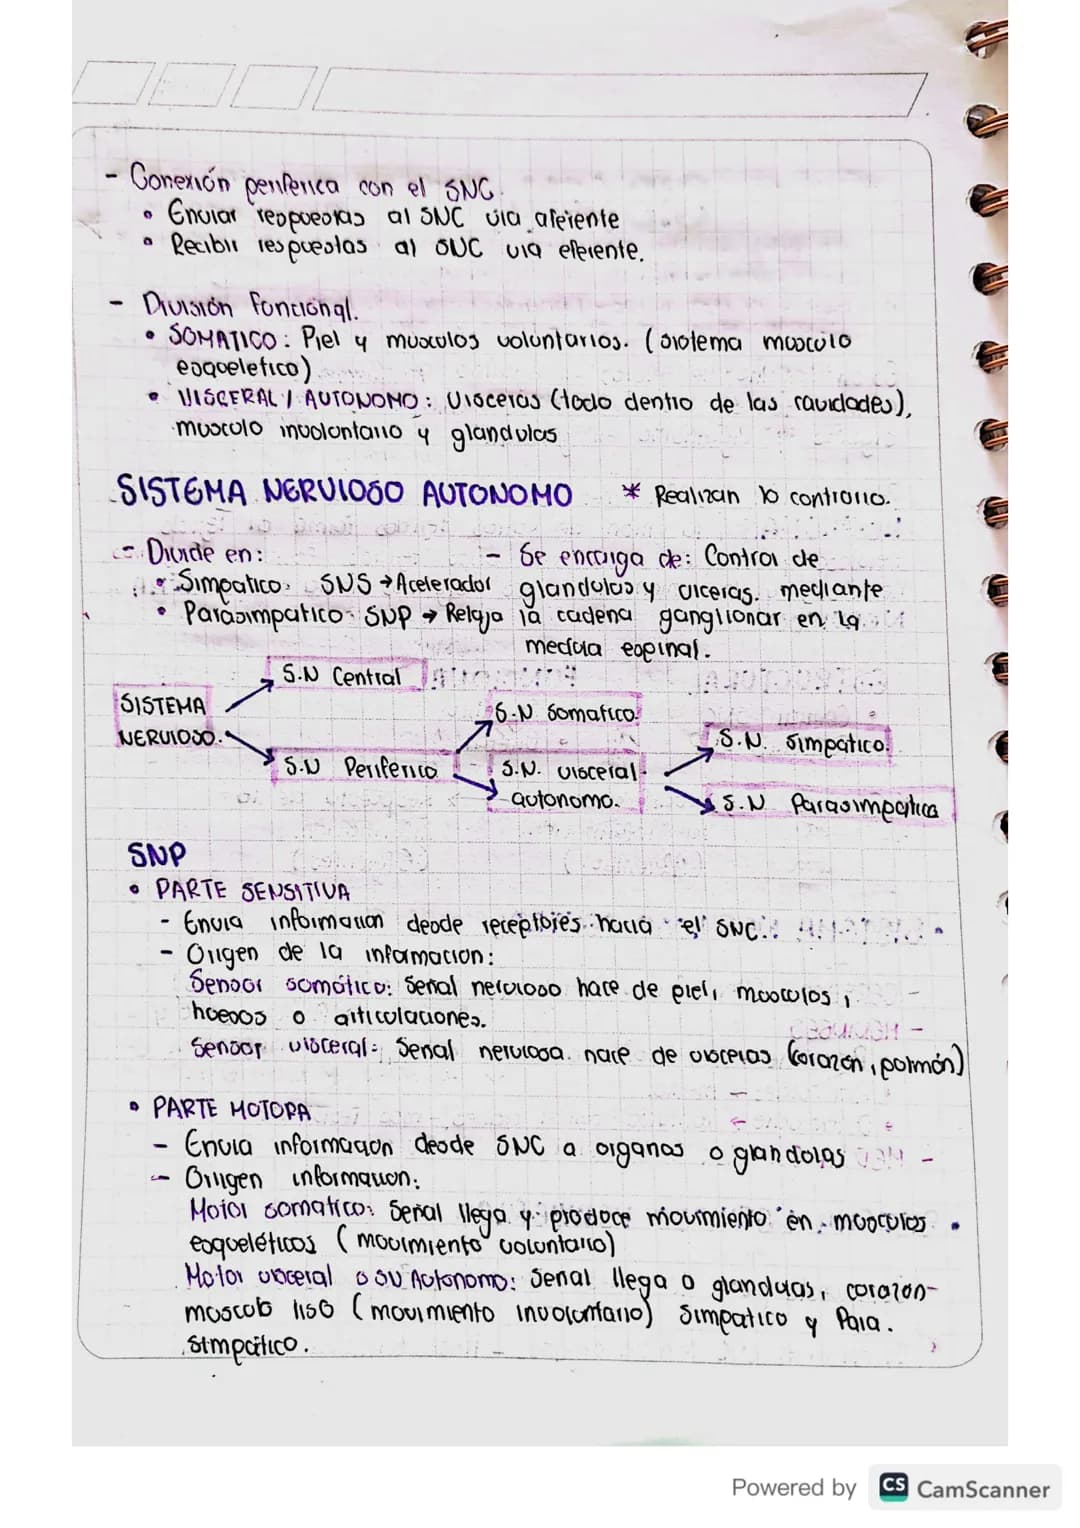 - Conexión periferica con el SNC.
• Enviar respuestas al SNC via aferente
• Recibir respuestas al SNC via eferente.
- División Funcional.
• SOMATICO: Piel y musculos voluntarios. (sistema musculo
esqueletico)
• VISCERAL / AUTONOMO: Visceras (todo dentro de las cavidades),
musculo involuntario y glandulas
SISTEMA NERVIOSO AUTONOMO * Realizan lo contrario.
- Divide en:
• Simpatico: SNS → Acelerador
• Parasimpatico: SNP → Relaja
- Se encarga de: Control de
glandulas y viceras. mediante
la cadena ganglionar en la
medula espinal.
SISTEMA
NERVIOSO.
S.N Central
S.N Periferico
S.N Somatico.
S.N. visceral
autonomo.
S.N. Simpatico.
S.N Parasimpatica
SNP
• PARTE SENSITIVA
- Envia informacion desde receptores hacia el SNC.
- Origen de la informacion:
Sensor somático: Señal nerviosa nace de piel, musculos,
huesos o articulaciones.
Sensor visceral: Senal nerviosa nace de visceras (corazón, pulmón)
• PARTE MOTORA
- Envia informacion desde SNC a organos o glandulas
- Origen informacion:
Motor somatico: Señal llega y produce movimiento en musculos
esqueléticos (movimiento voluntario)
Motor visceral o SN Autonomo: Senal llega a glandulas, corazon-
musculo liso (movimiento involuntario) Simpatico y Para.
simpático.
Powered by CS CamScanner